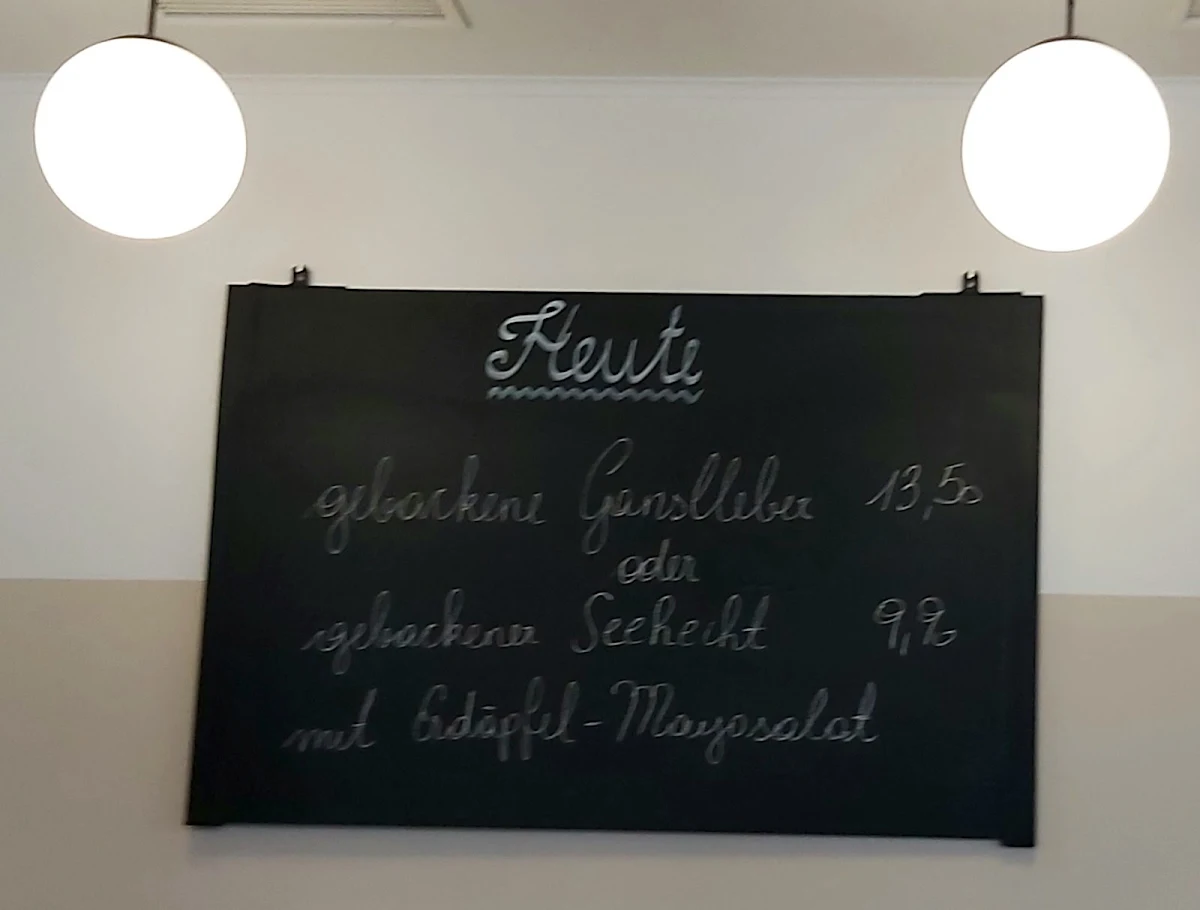 Heute
gebackene Ganslleber 13,50
oder
gebackener Seehecht 9,90
mit Erdäpfel-Mayosalat